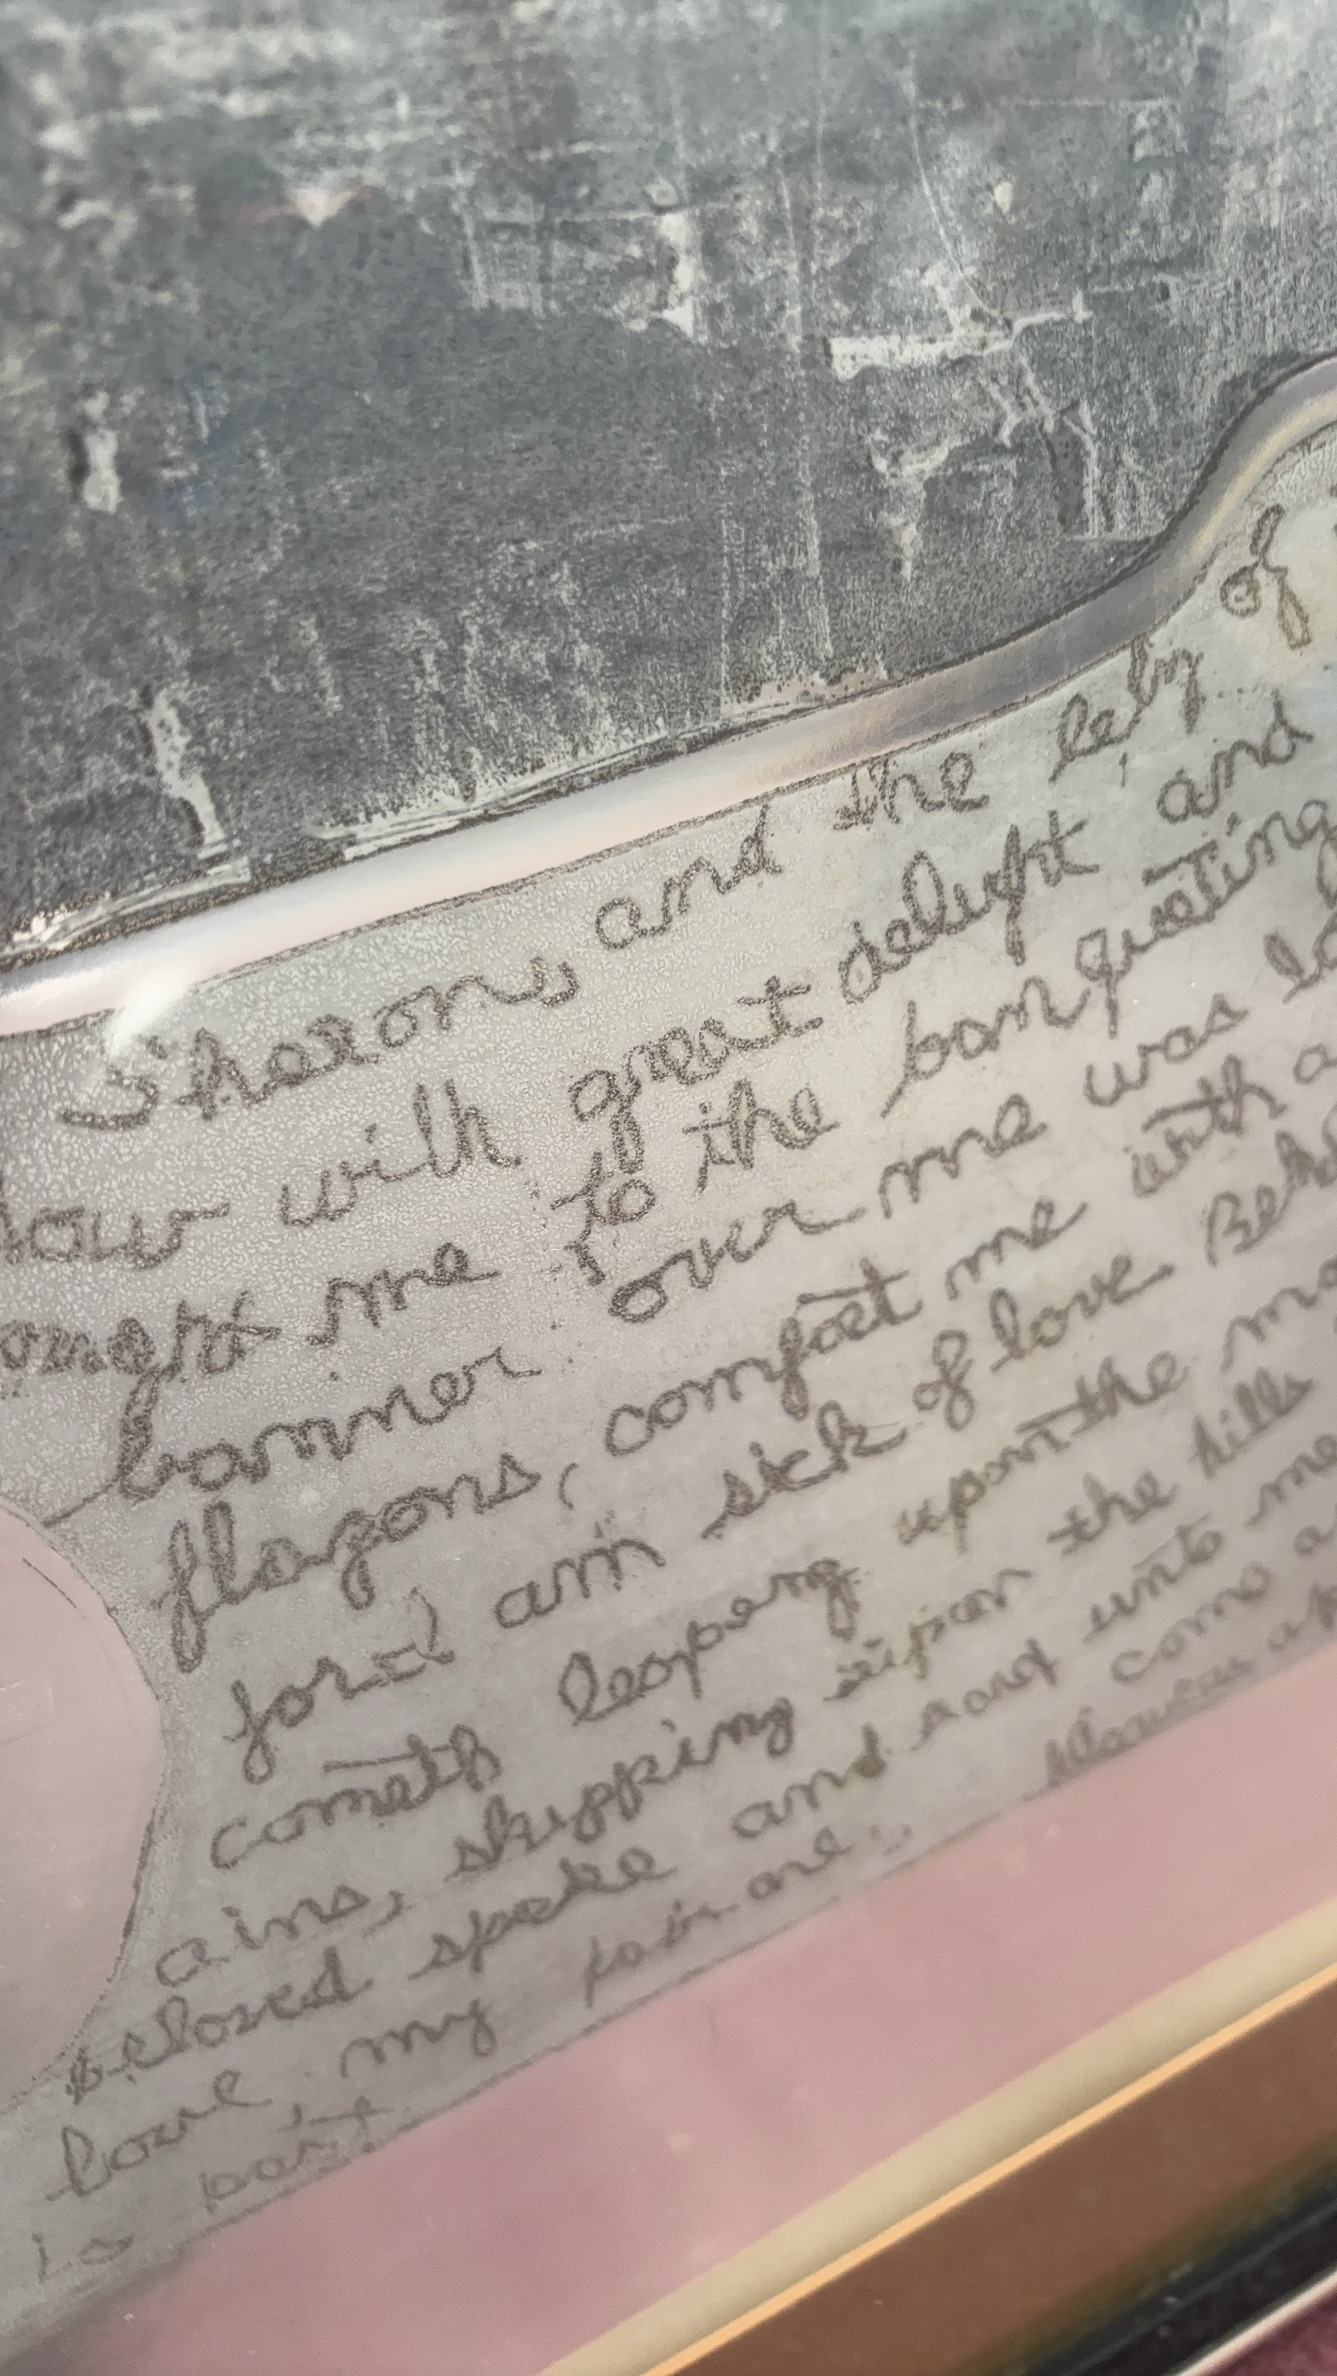 Sharons, and the lely of
dow with great delight and
ought me to the banqueting
banner over me was
flagons, comfort me with a
for I am sick of love. Beh
cometh leaping upon the mo
ains, skipping upon the hills
beloved spoke and said unto me
love, my fair one. come a
is past